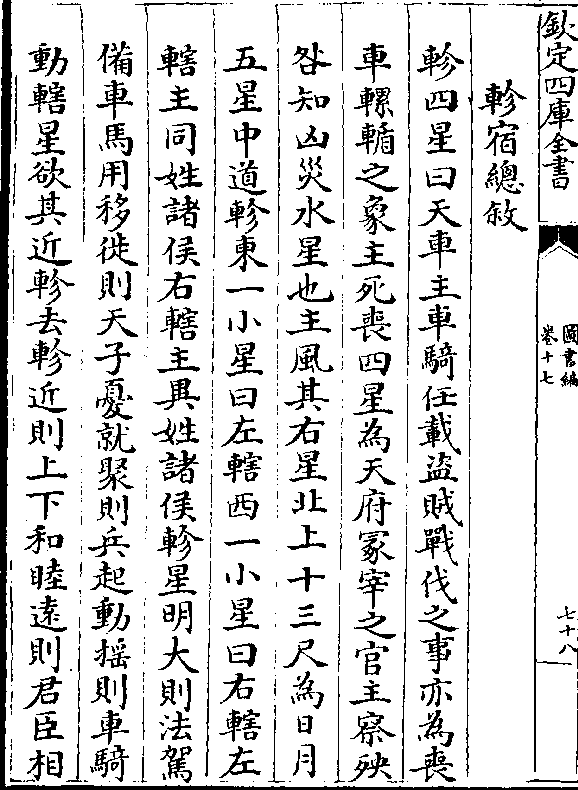 欽定四庫全書
圖書編
卷十七
七十八
軫宿總敘
軫四星曰天車主車騎任載盜賊戰伐之事亦為喪
車轝輴之象主死喪四星為天府冢宰之官主察殃
咎知凶災水星也主風其右星北上十三尺為日月
五星中道軫東一小星曰左轄西一小星曰右轄左
轄主同姓諸侯右轄主異姓諸侯軫星明大則法駕
備車馬用移徙則天子憂就聚則兵起動搖則車騎
動轄星欲其近軫去軫近則上下和睦遠則君臣相